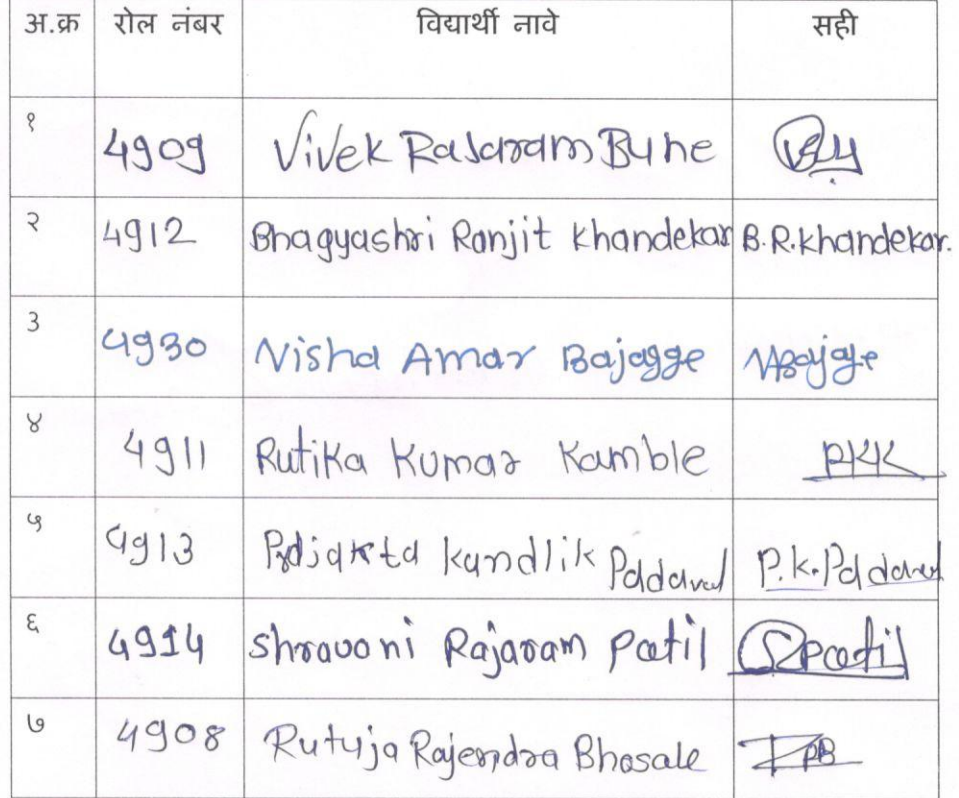 अ.क्र रोल नंबर विद्यार्थी नावे सही
१ 4909 Vivek Rajaram Bune
२ 4912 Bhagyashri Ranjit Khandekar B.R.Khandekar.
3 4930 Nisha Amar Bajagge NABajage
४ 4911 Rutika Kumar Kamble RKK
५ 4913 Prajakta Kundlik Padaval P.K.Padaval
६ 4914 Shravani Rajaram Patil SRPatil
७ 4908 Rutuja Rajendra Bhosale RRB